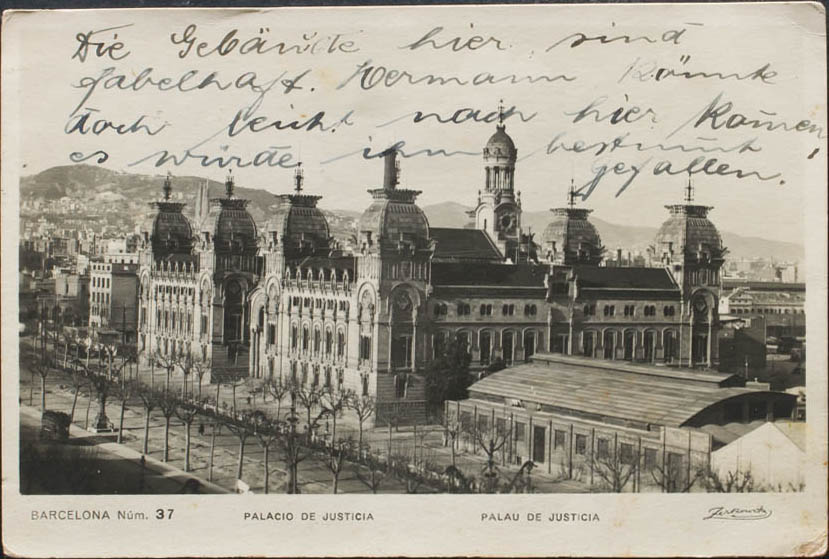 Die Gebäude hier sind
fabelhaft. Hermann könnte
doch leicht nach hier kommen,
es würde ihm bestimmt
gefallen.
BARCELONA Núm. 37 PALACIO DE JUSTICIA PALAU DE JUSTICIA Zerkowitz